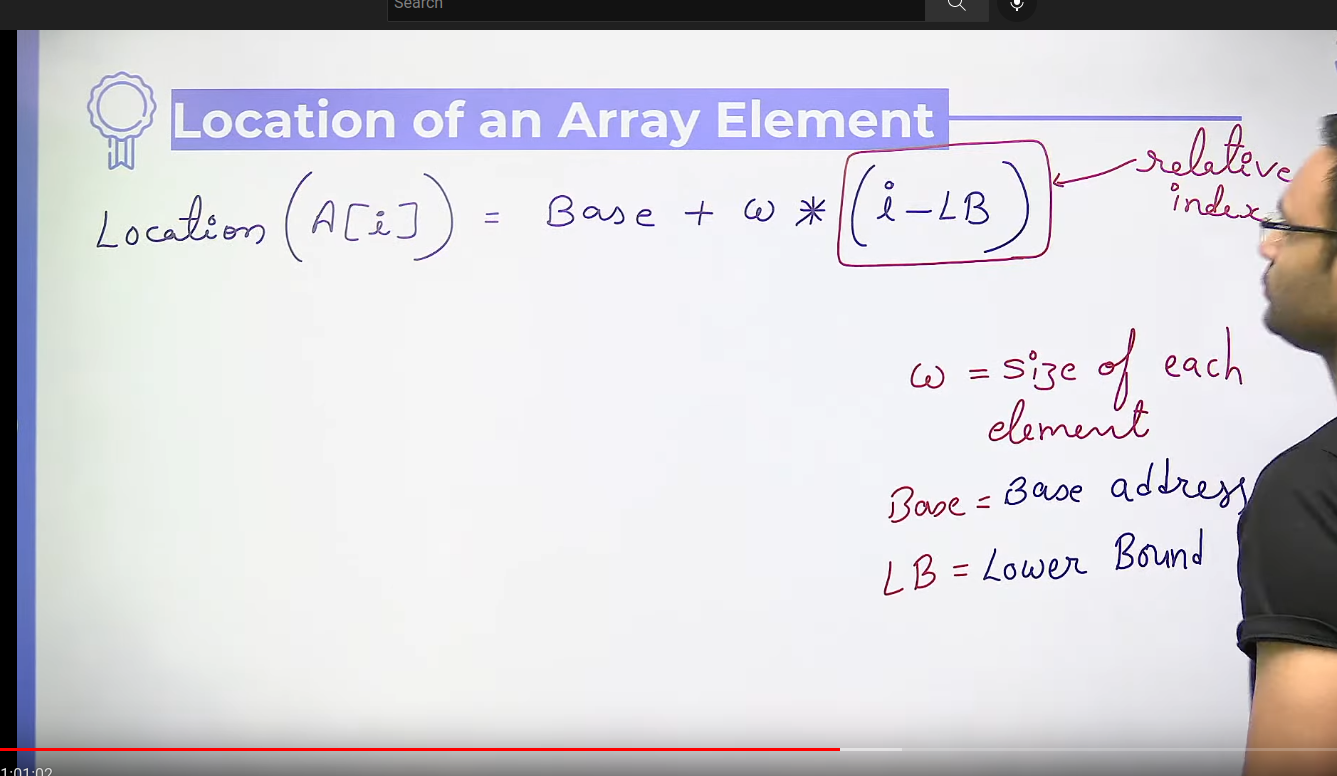 Search
Location of an Array Element
Location (A[i]) = Base + ω * (i-LB)
relative
index
ω = size of each
element
Base = Base address
LB = Lower Bound
1:01:02